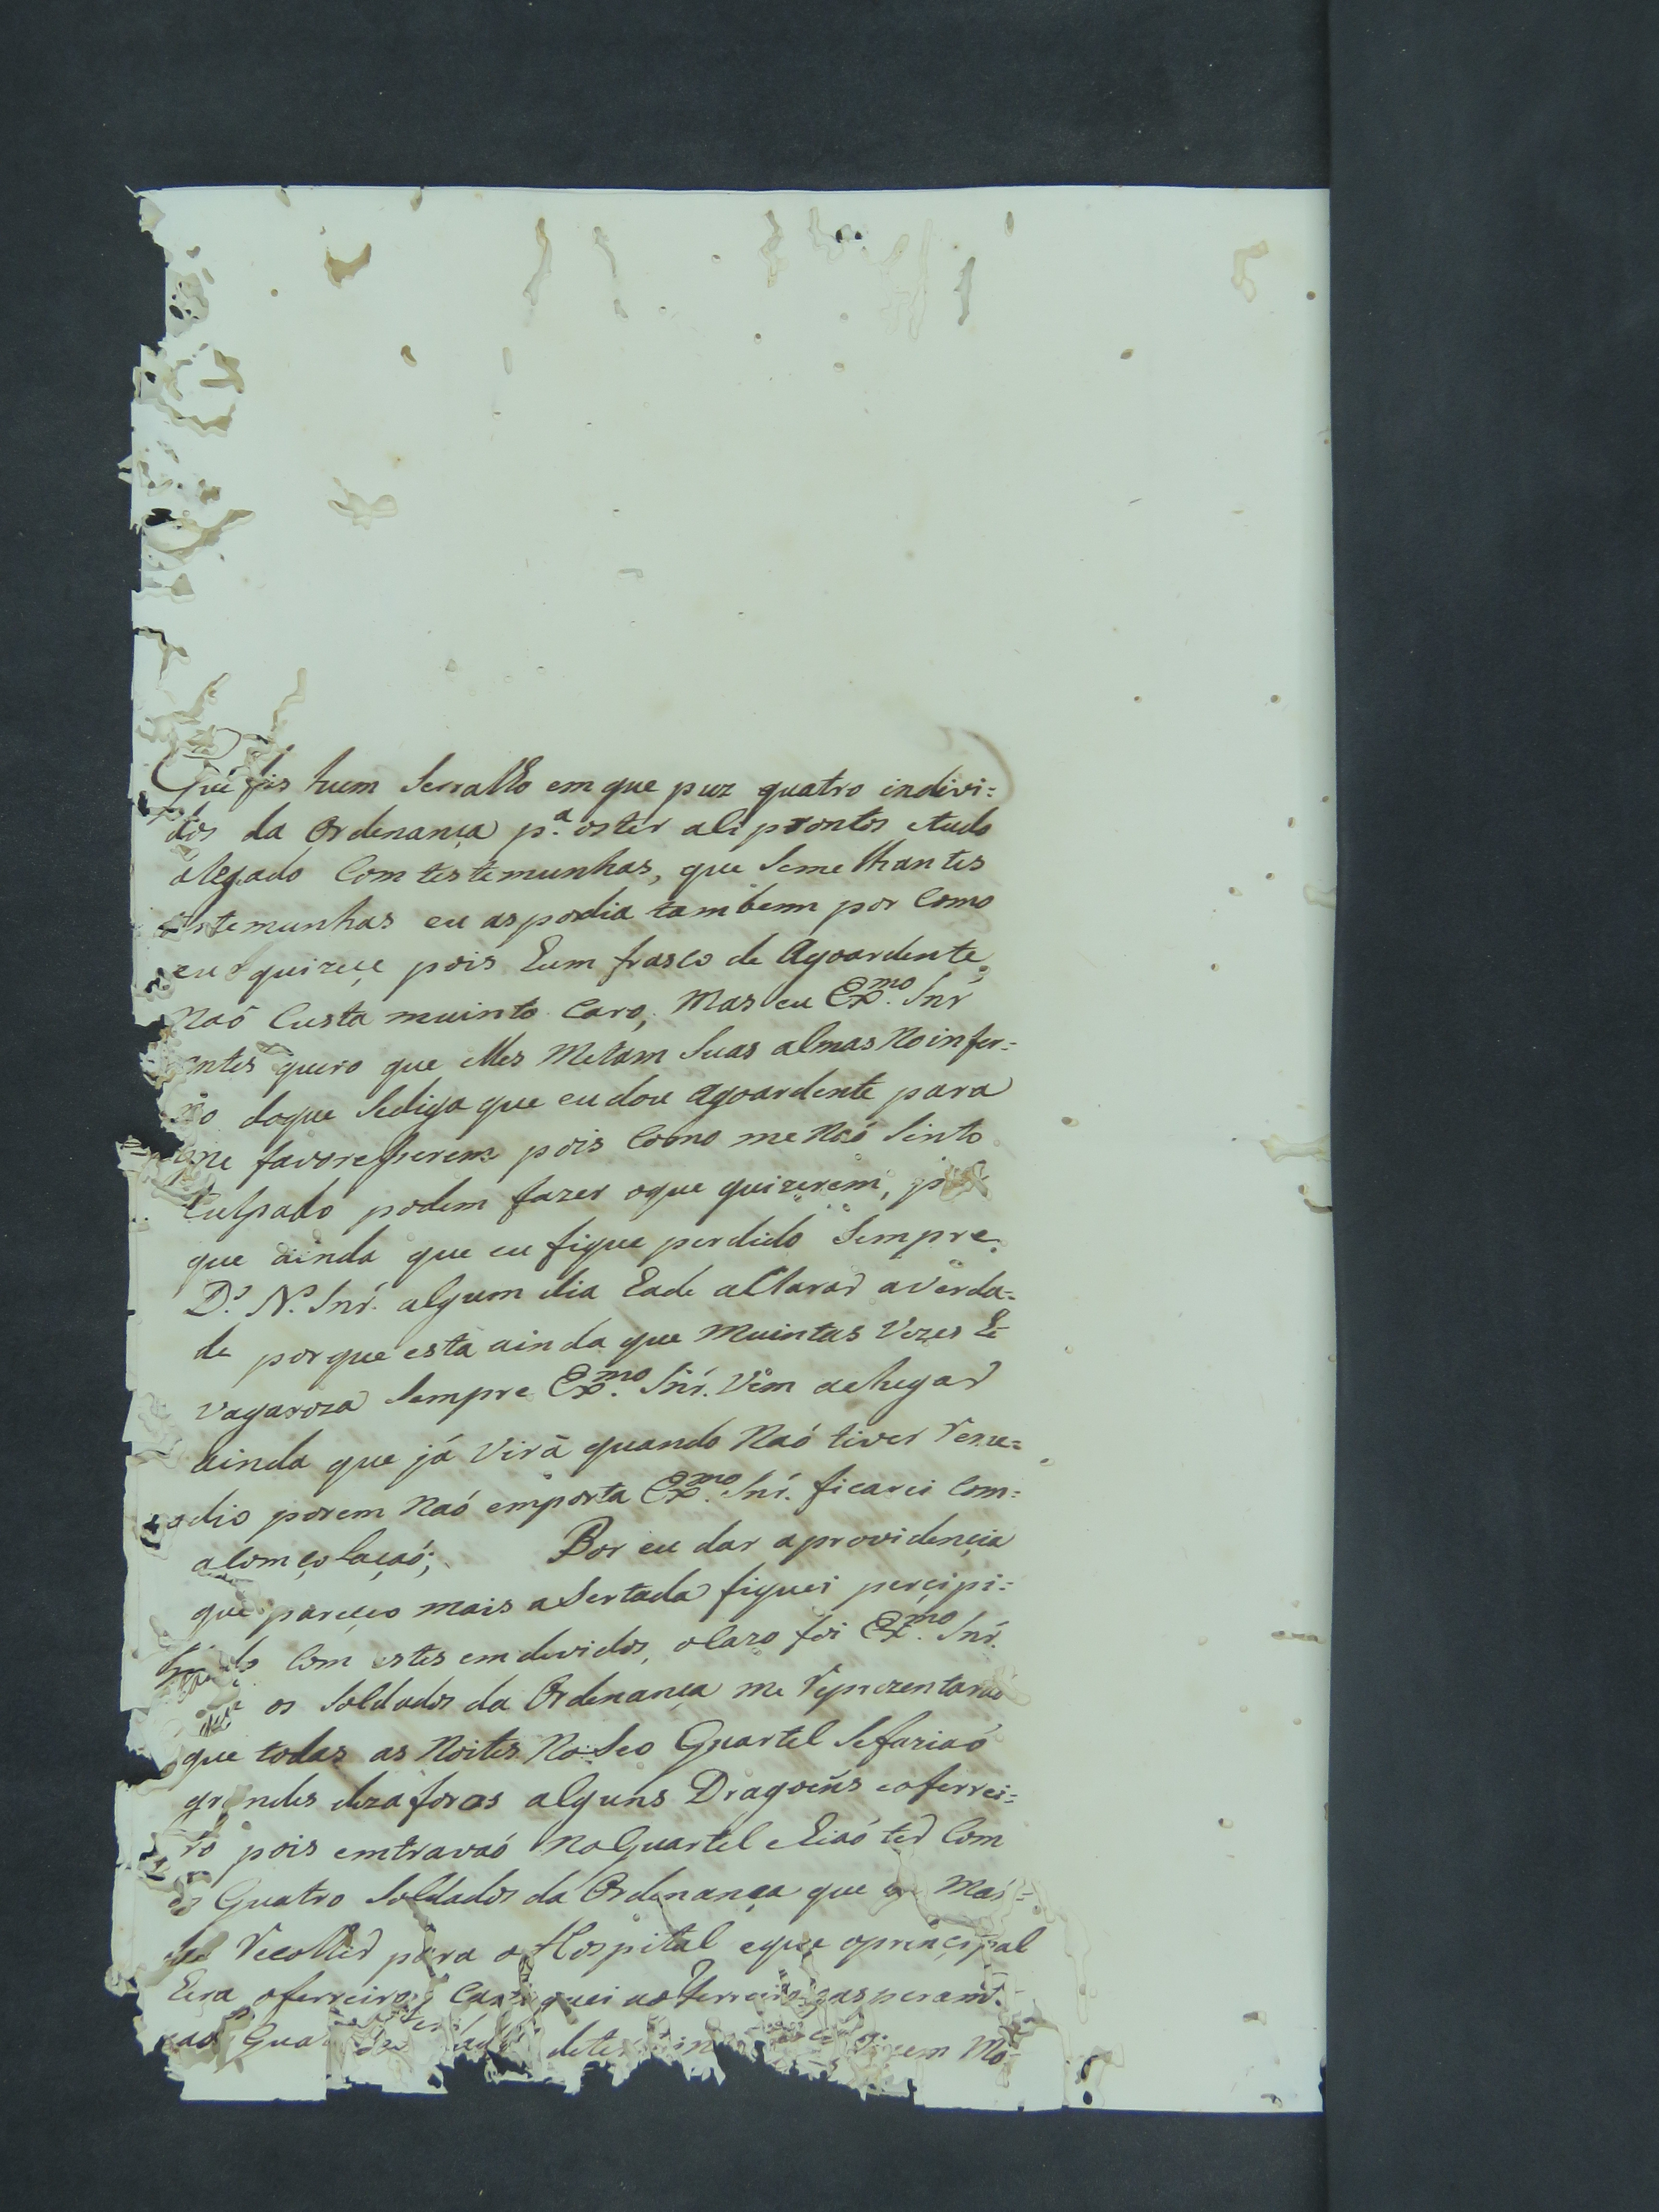 Que fis hum Serralho em que puz quatro indivi=
dos da Ordenança p.ª oster ali prontos etudo
alegado Com testemunhas, que Seme lhantes
testemunhas eu aspodia tambem por Como
eu quizeçe pois hum frasco de Agoardente
Naó Custa muinto Caro, Mas eu Ex.mo Snr
antes quero que elles Metam Suas almas Noinfer=
no doque Sediga que eudou agoardente para
me favoresserem pois Como me Naó Sinto
Culpado podem fazer oque quizerem,
que ainda que eu fique perdido Sempre
D.s N. Snr. algum dia hade aClarar averda=
de porque esta ainda que Muintas Vezes he
vagaroza Sempre Ex.mo Snr. Vem achegar
ainda que já Virá quando Naó tiver reme=
dio porem Naó emporta Ex.mo Snr. ficarei Com=
aComçolaçaó; Por eu dar aprovidençia
que pareçeo mais aSertada fiquei perçipi=
Com estes emdevidos, oCazo foi Ex.mo Snr.
os Soldados da Ordenança me reprezentaraó
que todas as Noites NoSeo Quartel Sefaziaó
grandes dezaforos alguns Dragoens eoferrei=
ro pois emtravaó NoQuartel ehiaó ter Com
os Quatro Soldados da Ordenança que Man=
dei recolher para o Hospital eque oprinçipal
hera oferreiro, Castiguei ao ferreiro asperamt.
em Mo